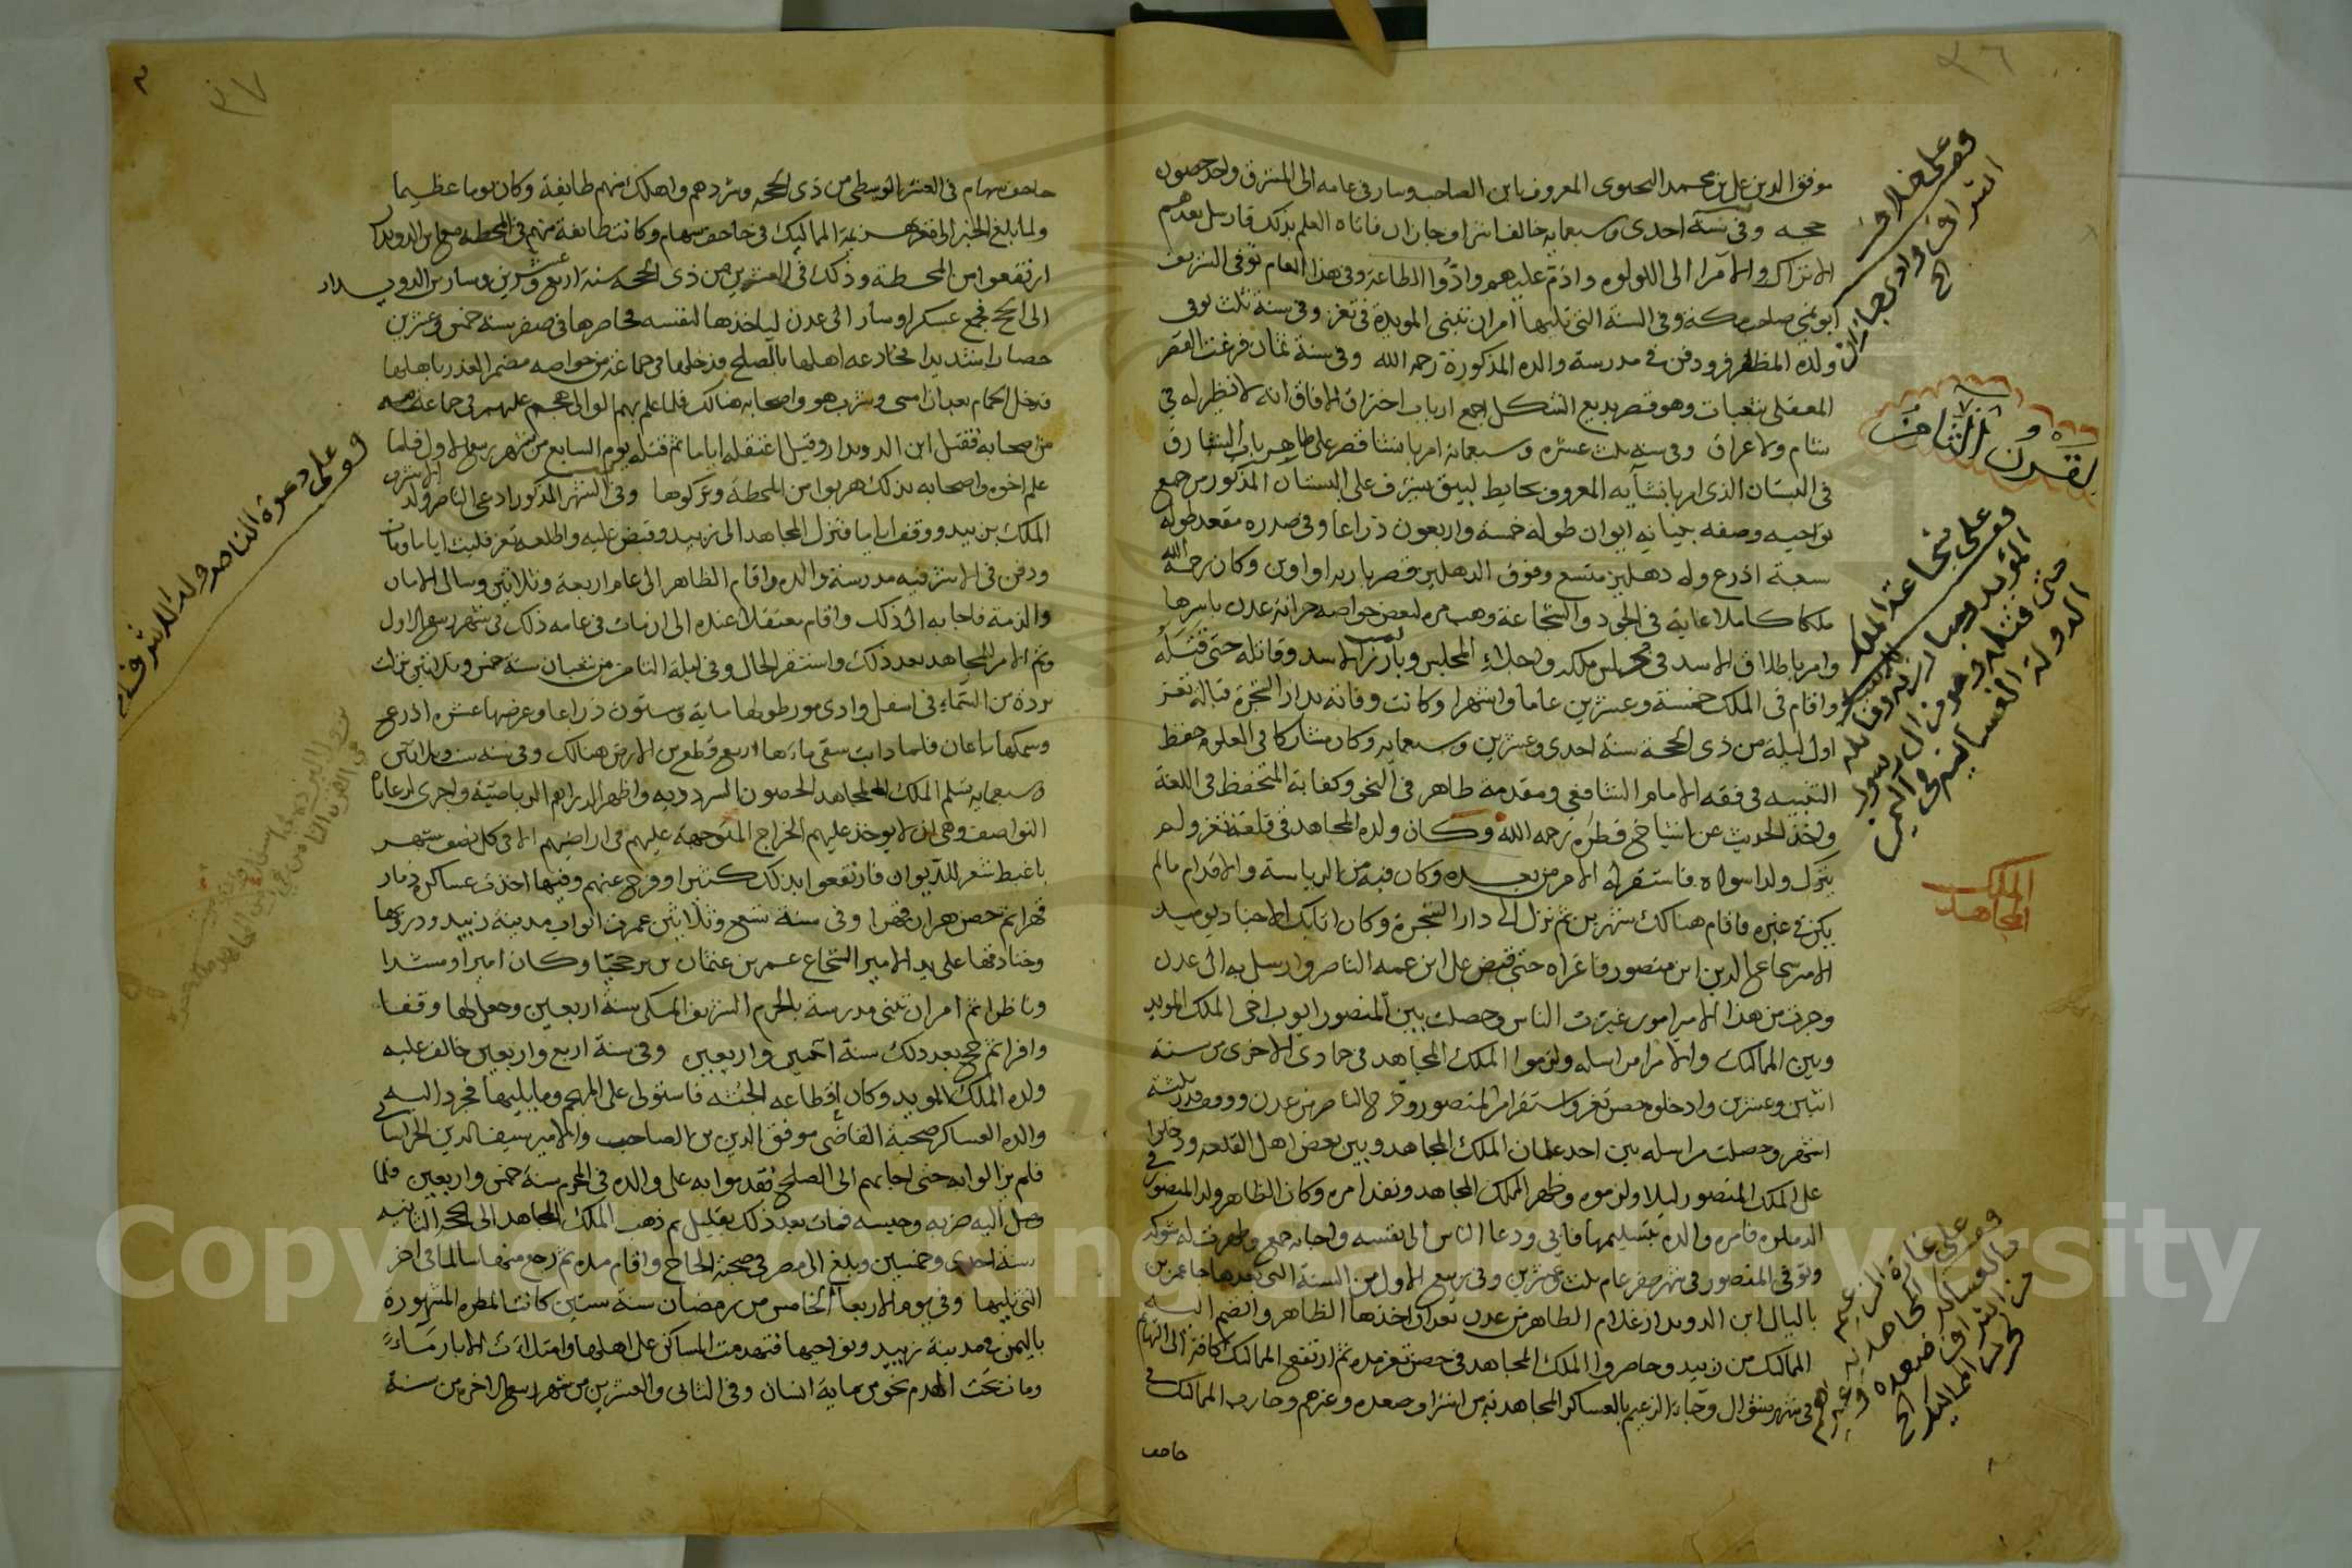 ٣٦
موفق الدين علي بن محمد اليحيوى المعروف بابن الصاحب وسار فى عامه الى المشرق واخذ حصون
حجه وفى سنة احدى وسبعمايه خالف اشراف جازان فاتاه العلم بذلك فارسل بعدهم
الاتراك والامرا الى اللولوه واذم عليهم وادوا الطاعة وفى هذا العام توفى الشريف
ابو نمي صاحب مكة وفى السنة التى تليها امر ان تبنى المويدية فى تعز وفى سنة ثلث توفى
ولده المظفر ودفن فى مدرسة والده المذكورة رحمه الله وفى سنة ثمان فرغت القصر
المعقلى بثعبات وهو قصر بديع الشكل اجمع ارباب اختراق الافاق انه لا نظير له فى
شام ولا عراق وفى سنه ثلث عشره وسبعمائة امر بانشا قصر على ظاهر باب الشبارق
فى البستان الذى امر بانشآيه المعروف بحايط لبيق يشرف على البستان المذكور من جميع
نواحيه وصفه بنيانه ايوان طوله خمسة واربعون ذراعا وفى صدره مقعد طوله
سبعة اذرع وله دهليز متسع وفوق الدهليز قصر باربد اواوين وكان رحمه الله
ملكا كاملا غاية فى الجود والشجاعة وهب مره لبعض خواصه خزانة عدن باسرها
وامر باطلاق الاسد فى مجلس ملكه واجلاء المجلس وبارز الاسد وقاتله حتى قتله
واقام فى الملك خمسة وعشرين عاما واشهرا وكانت وفاته بدار الشجرة قبالة تعز
اول ليلة من ذى الحجة سنة احدى وعشرين وسبعمايه وكان مشاركا فى العلوم حفظ
التنبيه فى فقه الامام الشافعي ومقدمة طاهر فى النحو وكفاية المتحفظ فى اللغة
واخذ الحديث عن اشياخ قطره رحمه الله وكان ولده المجاهد فى قلعة تعز ولم
يترك ولدا سواه فاستقر له الامر من بعده وكان فيه من الرياسة والاقدام مالم
يكن فى غيره فاقام هناك شهرين ثم نزل الى دار الشجرة وكان اتابك الاجناد يوميد
الامير شجاع الدين ابن منصور فاغراه حتى قبض على ابن عمه الناصر وارسل به الى عدن
وجرت من هذا الامير امور غيرت الناس وحصلت بين المنصور ايوب اخى الملك المويد
وبين المماليك والامرا مراسله ولزموا الملك المجاهد فى جمادى الاخرى من سنة
اثنين وعشرين وادخلوه حصن تعز واستقر امر المنصور وخرج الناصر من عدن ووقف قدر ثلثة
اشهر وحصلت مراسله بين احد غلمان الملك المجاهد وبين بعض اهل القلعه ودخلوا
على الملك المنصور ليلا ولزموه وظهر الملك المجاهد ونفذ امره وكان الظاهر ولد المنصور فى
الدملوه فامره والده بتسليمها فابى ودعا الناس الى نفسه واجابه جمع وظهرت له شوكه
وتوفى المنصور فى شهر صفر عام ثلث وعشرين وفى ربيع الاول من السنة التى بعدها جا عمر بن
بالبال ابن الدويدار غلام الظاهر من عدن بعد ان اخذها الظاهر وانضم اليه
المماليك من زبيد وحاصروا الملك المجاهد فى حصن تعز مده ثم ارتفع المماليك كافة الى التهايم
فى شهر شوال وجاءه الزعيم بالعساكر المجاهديه من اشراف صعده وغيرهم وحارب المماليك فى
جاحف
وقف على خلاف
اشراف وادى جازان
الخ
القرن الثامن
وقف على شجاعة الملك
المؤيد ومبارزته للاسد وقاتله
حتى قتله وهو من ال رسول
الدولة الغسانية فى اليمن
الملك
المجاهد
وقف على غارة الزعيم
والعساكر المجاهديه
من اشراف صعده وغيرهم
لحرب المماليك الخ
٣٧
جاحف سهام فى العشر الوسطى من ذى الحجه وشردهم واهلك منهم طايفة وكان يوما عظيما
ولما بلغ الخبر الى تعز هزيمة المماليك فى جاحف سهام وكانت طايفة منهم فى المحطه مع ابن الدويدار
ارتفعوا من المحطة وذلك فى العشرين من ذى الحجه سنة اربع وعشرين وسار بن الدويدار
الى لحج فجمع عسكرا وسار الى عدن لياخذها لنفسه فحاصرها فى صفر سنة خمس وعشرين
حصارا شديدا فخادعه اهلها بالصلح فدخلها فى جماعة من خواصه مضمر الغدر باهلها
فدخل الحمام بعد ان امسى وشرب هو واصحابه هنالك فلما علم بهم الوالى هجم عليهم فى جماعة
من اصحابه فقتل ابن الدويدار وقيل اعتقله اياما ثم قتله يوم السابع من شهر ربيع الاول فلما
علم اخوه واصحابه بذلك هربوا من المحطة وتركوها وفى الشهر المذكور ادعى الناصر ولد الاشرف
الملك بزبيد ووقف اياما فنزل المجاهد الى زبيد وقبض عليه واطلعه تعز فلبث اياما ومات
ودفن فى الاشرفيه مدرسة والده واقام الظاهر الى عام اربعة وثلاثين وسال الامان
والذمة فاجابه الى ذلك واقام معتقلا عنده الى ان مات فى عامه ذلك فى شهر ربيع الاول
وتم الامر للمجاهد بعد ذلك واستقر الحال وفى ليلة الثامن من شعبان سنة خمس وثلاثين نزلت
بردة من السماء فى اسفل وادى مور طولها ماية وستون ذراعا وعرضها عشره اذرع
وسمكها باعان فلما ذابت سقى ماءها اربع قطع من الارض هنالك وفى سنه ست وثلاثين
وسبعمايه تسلم الملك المجاهد الحصون السردديه واظهر الدراهم الرياضيه واجرى لرعايا
النواصف وهى ان لا يوخذ عليهم الخراج المتوجهة عليهم فى اراضيهم الا فى كل نصف شهر
باغبط سعر للديوان فارتفعوا بذلك كثيرا وفرج عنهم وفيها اخذت عساكره ذمار
قهرا ثم حصن هران قهرا وفى سنة تسع وثلاثين عمرت ابواب مدينة زبيد ودربها
وخنادقها على يد الامير الشجاع عمر بن عثمان بن وكان اميرا ومشدا
وناظرا ثم امر ان تبنى مدرسة بالحرم الشريف المكى سنة اربعين وجعل لها وقفا
وافرا ثم حج بعد ذلك سنة اثنين واربعين وفى سنة اربع واربعين خالف عليه
ولده الملك المويد وكان اقطاعه الجثه فاستولى على المهجم ومايليها فجرد اليه
والده العساكر صحبة القاضى موفق الدين بن الصاحب والامير سيف الدين الخراسانى
فلم يزالوا به حتى اجابهم الى الصلح فقدموا به على والده فى المحرم سنة خمس واربعين فلما
وصل اليه ضربه وحبسه فمات بعد ذلك بقليل ثم ذهب الملك المجاهد الى الحجه الثانيه
سنة احدى وخمسين وبلغ الى مصر فى صحبة الحاج واقام مده ثم رجع منها سالما فى اخر
التى تليها وفى يوم الاربعا الخامس من رمضان سنة ستين كانت المطره المشهورة
باليمن فى مدينة زبيد ونواحيها فتهدمت المساكن على اهلها وامتلات الابار مآءً
ومات تحت الهدم نحو من ماية انسان وفى الثانى والعشرين من شهر ربيع الاخر من سنة
وقف على دعوة الناصر ولد الاشرف